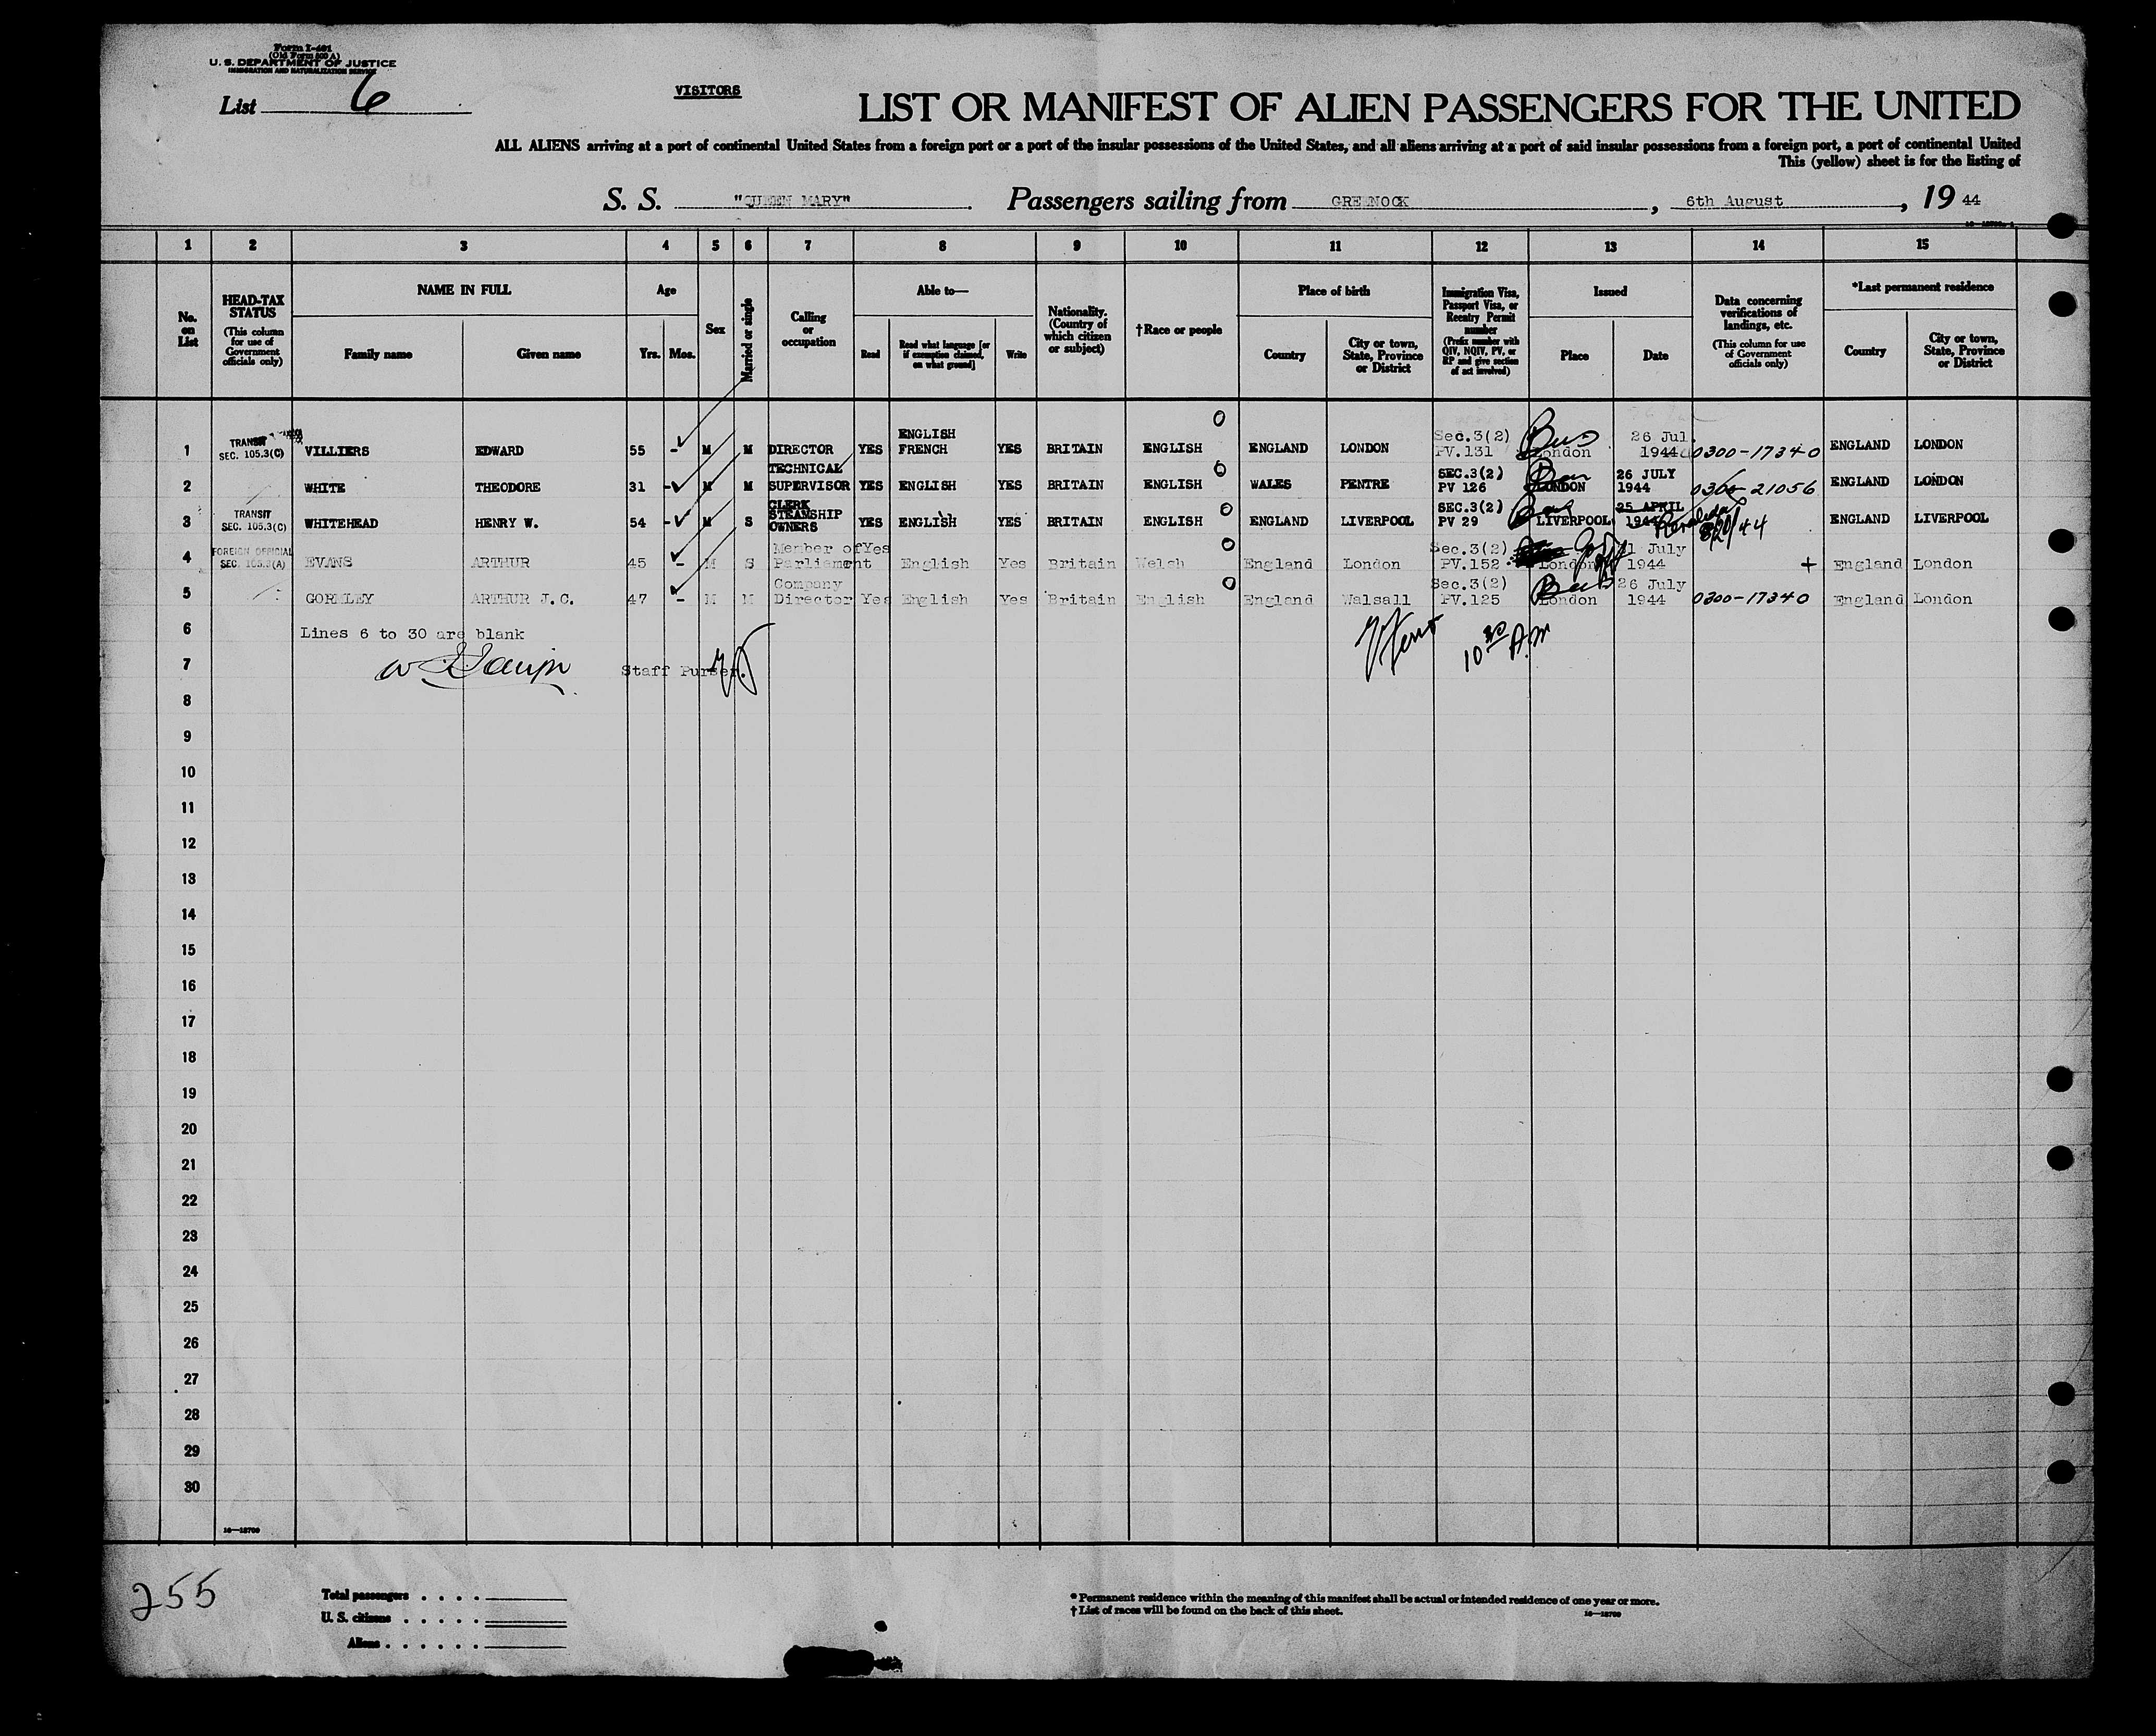 Form I-401
(Old Form 500 A)
U. S. DEPARTMENT OF JUSTICE
IMMIGRATION AND NATURALIZATION SERVICE
List 6
VISITORS
LIST OR MANIFEST OF ALIEN PASSENGERS FOR THE UNITED
ALL ALIENS arriving at a port of continental United States from a foreign port or a port of the insular possessions of the United States, and all aliens arriving at a port of said insular possessions from a foreign port, a port of continental United
This (yellow) sheet is for the listing of
S. S. "QUEEN MARY" Passengers sailing from GREENOCK, 6th August, 19 44
1 2 3 4 5 6 7 8 9 10 11 12 13 14 15
No. on List
HEAD-TAX STATUS (This column for use of Government officials only)
NAME IN FULL Family name Given name
Age Yrs. Mos.
Sex
Married or single
Calling or occupation
Able to— Read Read what language [or if exemption claimed, on what ground] Write
Nationality. (Country of which citizen or subject)
†Race or people
Place of birth Country City or town, State, Province or District
Immigration Visa, Passport Visa, or Reentry Permit number (Prefix number with QIV, NQIV, PV, or RP and give section of act involved)
Issued Place Date
Data concerning verifications of landings, etc. (This column for use of Government officials only)
*Last permanent residence Country City or town, State, Province or District
1 TRANSIT SEC. 105.3(C) VILLIERS EDWARD 55 - M M DIRECTOR YES ENGLISH FRENCH YES BRITAIN ENGLISH ENGLAND LONDON Sec.3(2) PV.131 London 26 Jul. 1944 0300-17340 ENGLAND LONDON
2 WHITE THEODORE 31 - M M TECHNICAL SUPERVISOR YES ENGLISH YES BRITAIN ENGLISH WALES PENTRE SEC.3(2) PV 126 LONDON 26 JULY 1944 0300-21056 ENGLAND LONDON
3 TRANSIT SEC. 105.3(C) WHITEHEAD HENRY W. 54 - M S CLERK STEAMSHIP OWNERS YES ENGLISH YES BRITAIN ENGLISH ENGLAND LIVERPOOL SEC.3(2) PV 29 LIVERPOOL 25 APRIL 1944 ENGLAND LIVERPOOL
4 FOREIGN OFFICIAL SEC. 105.3(A) EVANS ARTHUR 45 - M S Member of Parliament Yes English Yes Britain Welsh England London Sec.3(2) PV.152 London July 1944 + England London
5 GORMLEY ARTHUR J.C. 47 - M M Company Director Yes English Yes Britain English England Walsall Sec.3(2) PV.125 London 26 July 1944 0300-17340 England London
6 Lines 6 to 30 are blank
10 30 A.M
7 Staff Purser.
8
9
10
11
12
13
14
15
16
17
18
19
20
21
22
23
24
25
26
27
28
29
30
16—18700
255
Total passengers
U. S. citizens
Aliens
* Permanent residence within the meaning of this manifest shall be actual or intended residence of one year or more.
† List of races will be found on the back of this sheet.
16—18700